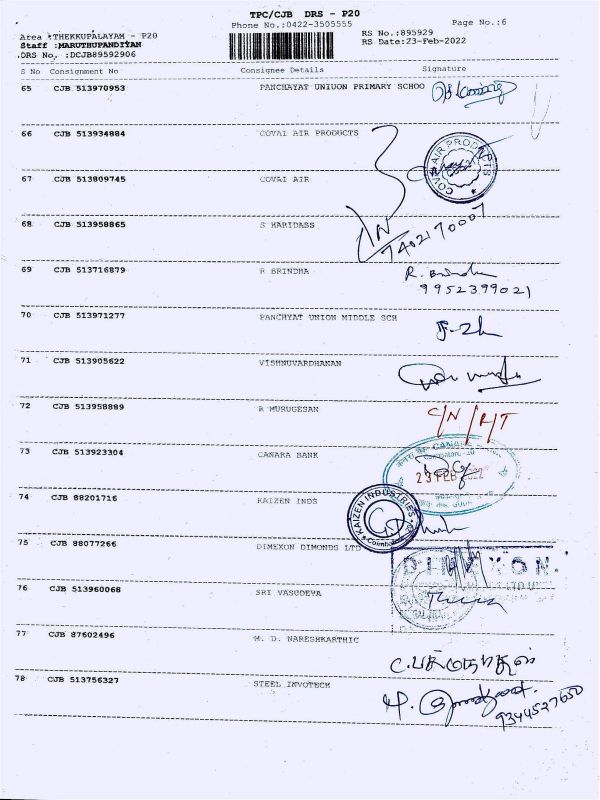 TPC/CJB DRS - P20
Phone No.:0422-3505555
Page No.:6
Area :THEKKUPALAYAM - P20
RS No.:895929
Staff :MARUTHUPANDIYAN
RS Date:23-Feb-2022
DRS No. :DCJB89592906
S No Consignment No Consignee Details Signature
65 CJB 513970953 PANCHAYAT UNIUON PRIMARY SCHOO
66 CJB 513934884 COVAI AIR PRODUCTS
COVAI AIR PRODUCTS
67 CJB 513809745 COVAI AIR
68 CJB 513958865 S HARIDASS
7402170007
69 CJB 513716879 R BRINDHA
R. Brindha
9952399021
70 CJB 513971277 PANCHYAT UNION MIDDLE SCH
71 CJB 513905622 VISHNUVARDHANAN
72 CJB 513958889 R MURUGESAN
C/N/R/T
73 CJB 513923304 CANARA BANK
CANARA
23 FEB 2022
74 CJB 88201716 KAIZEN INDS
KAIZEN INDUSTRIES
Coimbatore
75 CJB 88077266 DIMEXON DIMONDS LTD
DIMEXON
76 CJB 513960068 SRI VASUDEVA
77 CJB 87602496 M. D. NARESHKARTHIC
78 CJB 513756327 STEEL INVOTECH
9344527650